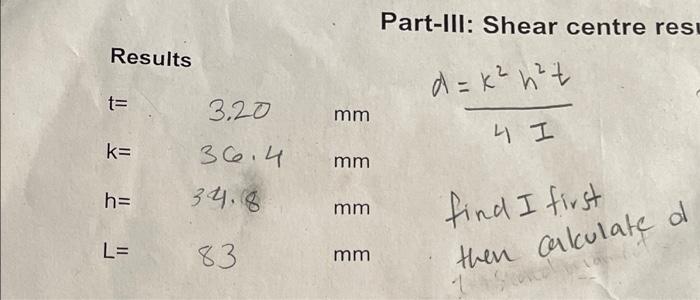 Part-III: Shear centre res
Results
t= 3.20 mm
k= 36.4 mm
h= 34.8 mm
L= 83 mm
d = k² h² t
4 I
find I first
then calculate d